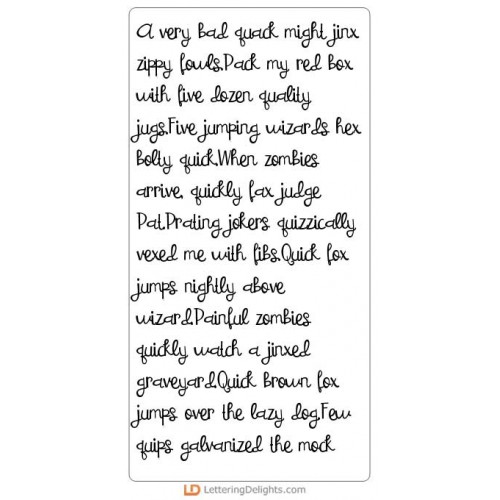 A very bad quack might jinx
zippy fowls.Pack my red box
with five dozen quality
jugs.Five jumping wizards hex
bolty quick.When zombies
arrive, quickly fax judge
Pat.Prating jokers quizzically
vexed me with fibs.Quick fox
jumps nightly above
wizard.Painful zombies
quickly watch a jinxed
graveyard.Quick brown fox
jumps over the lazy dog.Few
quips galvanized the mock
LD LetteringDelights.com